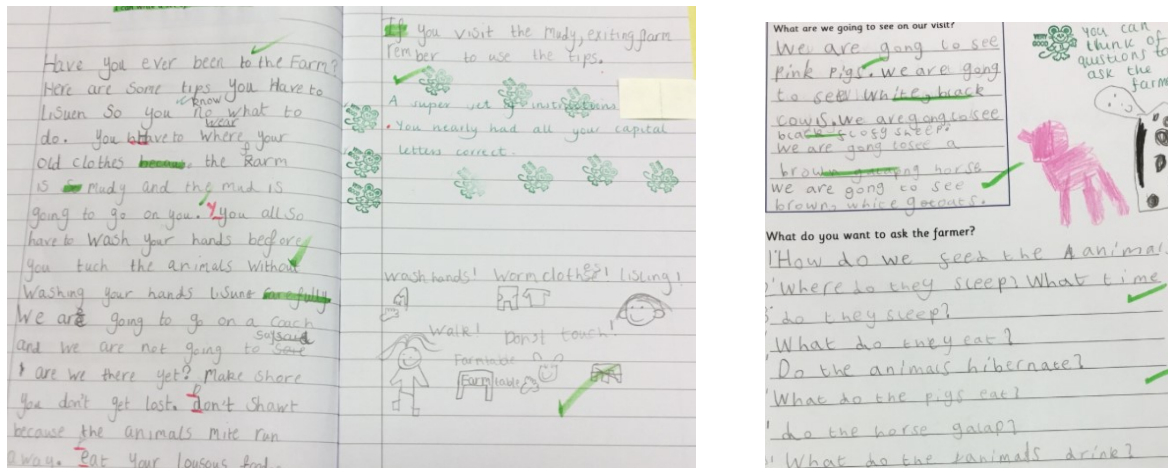 Have you ever been to the Farm?
Here are some tips you Have to
Lisuen So you no what to
know
do. You Have to where your
wear
old clothes becaus. the Farm
is so mudy and the mud is
going to go on you. You allso
have to wash your hands before
you tuch the animals without
washing your hands Lisune carefully
We are going to go on a coach
and we are not going to say
are we there yet? Make shore
you don't get lost. Don't shawt
because the animals mite run
away. Eat your
If you visit the mudy, exiting farm
rember to use the tips.
A super set of instructions.
You nearly had all your capital
letters correct.
wash hands! Worm clothes! Lisling!
Walk! Donst touch!
Farmtable
Farm table
What are we going to see on our visit?
We are gong to see
pink pigs. We are gong
to see white, black
cows. We are gong to see
black flufy sheep.
We are gong to see a
brown horse
we are gong to see
brown, white
VERY GOOD
you can
think of
qustions to
ask the
farm
What do you want to ask the farmer?
How do we feed the animal
Where do they sleep? What time
do they sleep?
What do they eat?
Do the animals hibernate?
What do the pigs eat?
do the horse galap?
What do the animals drink?